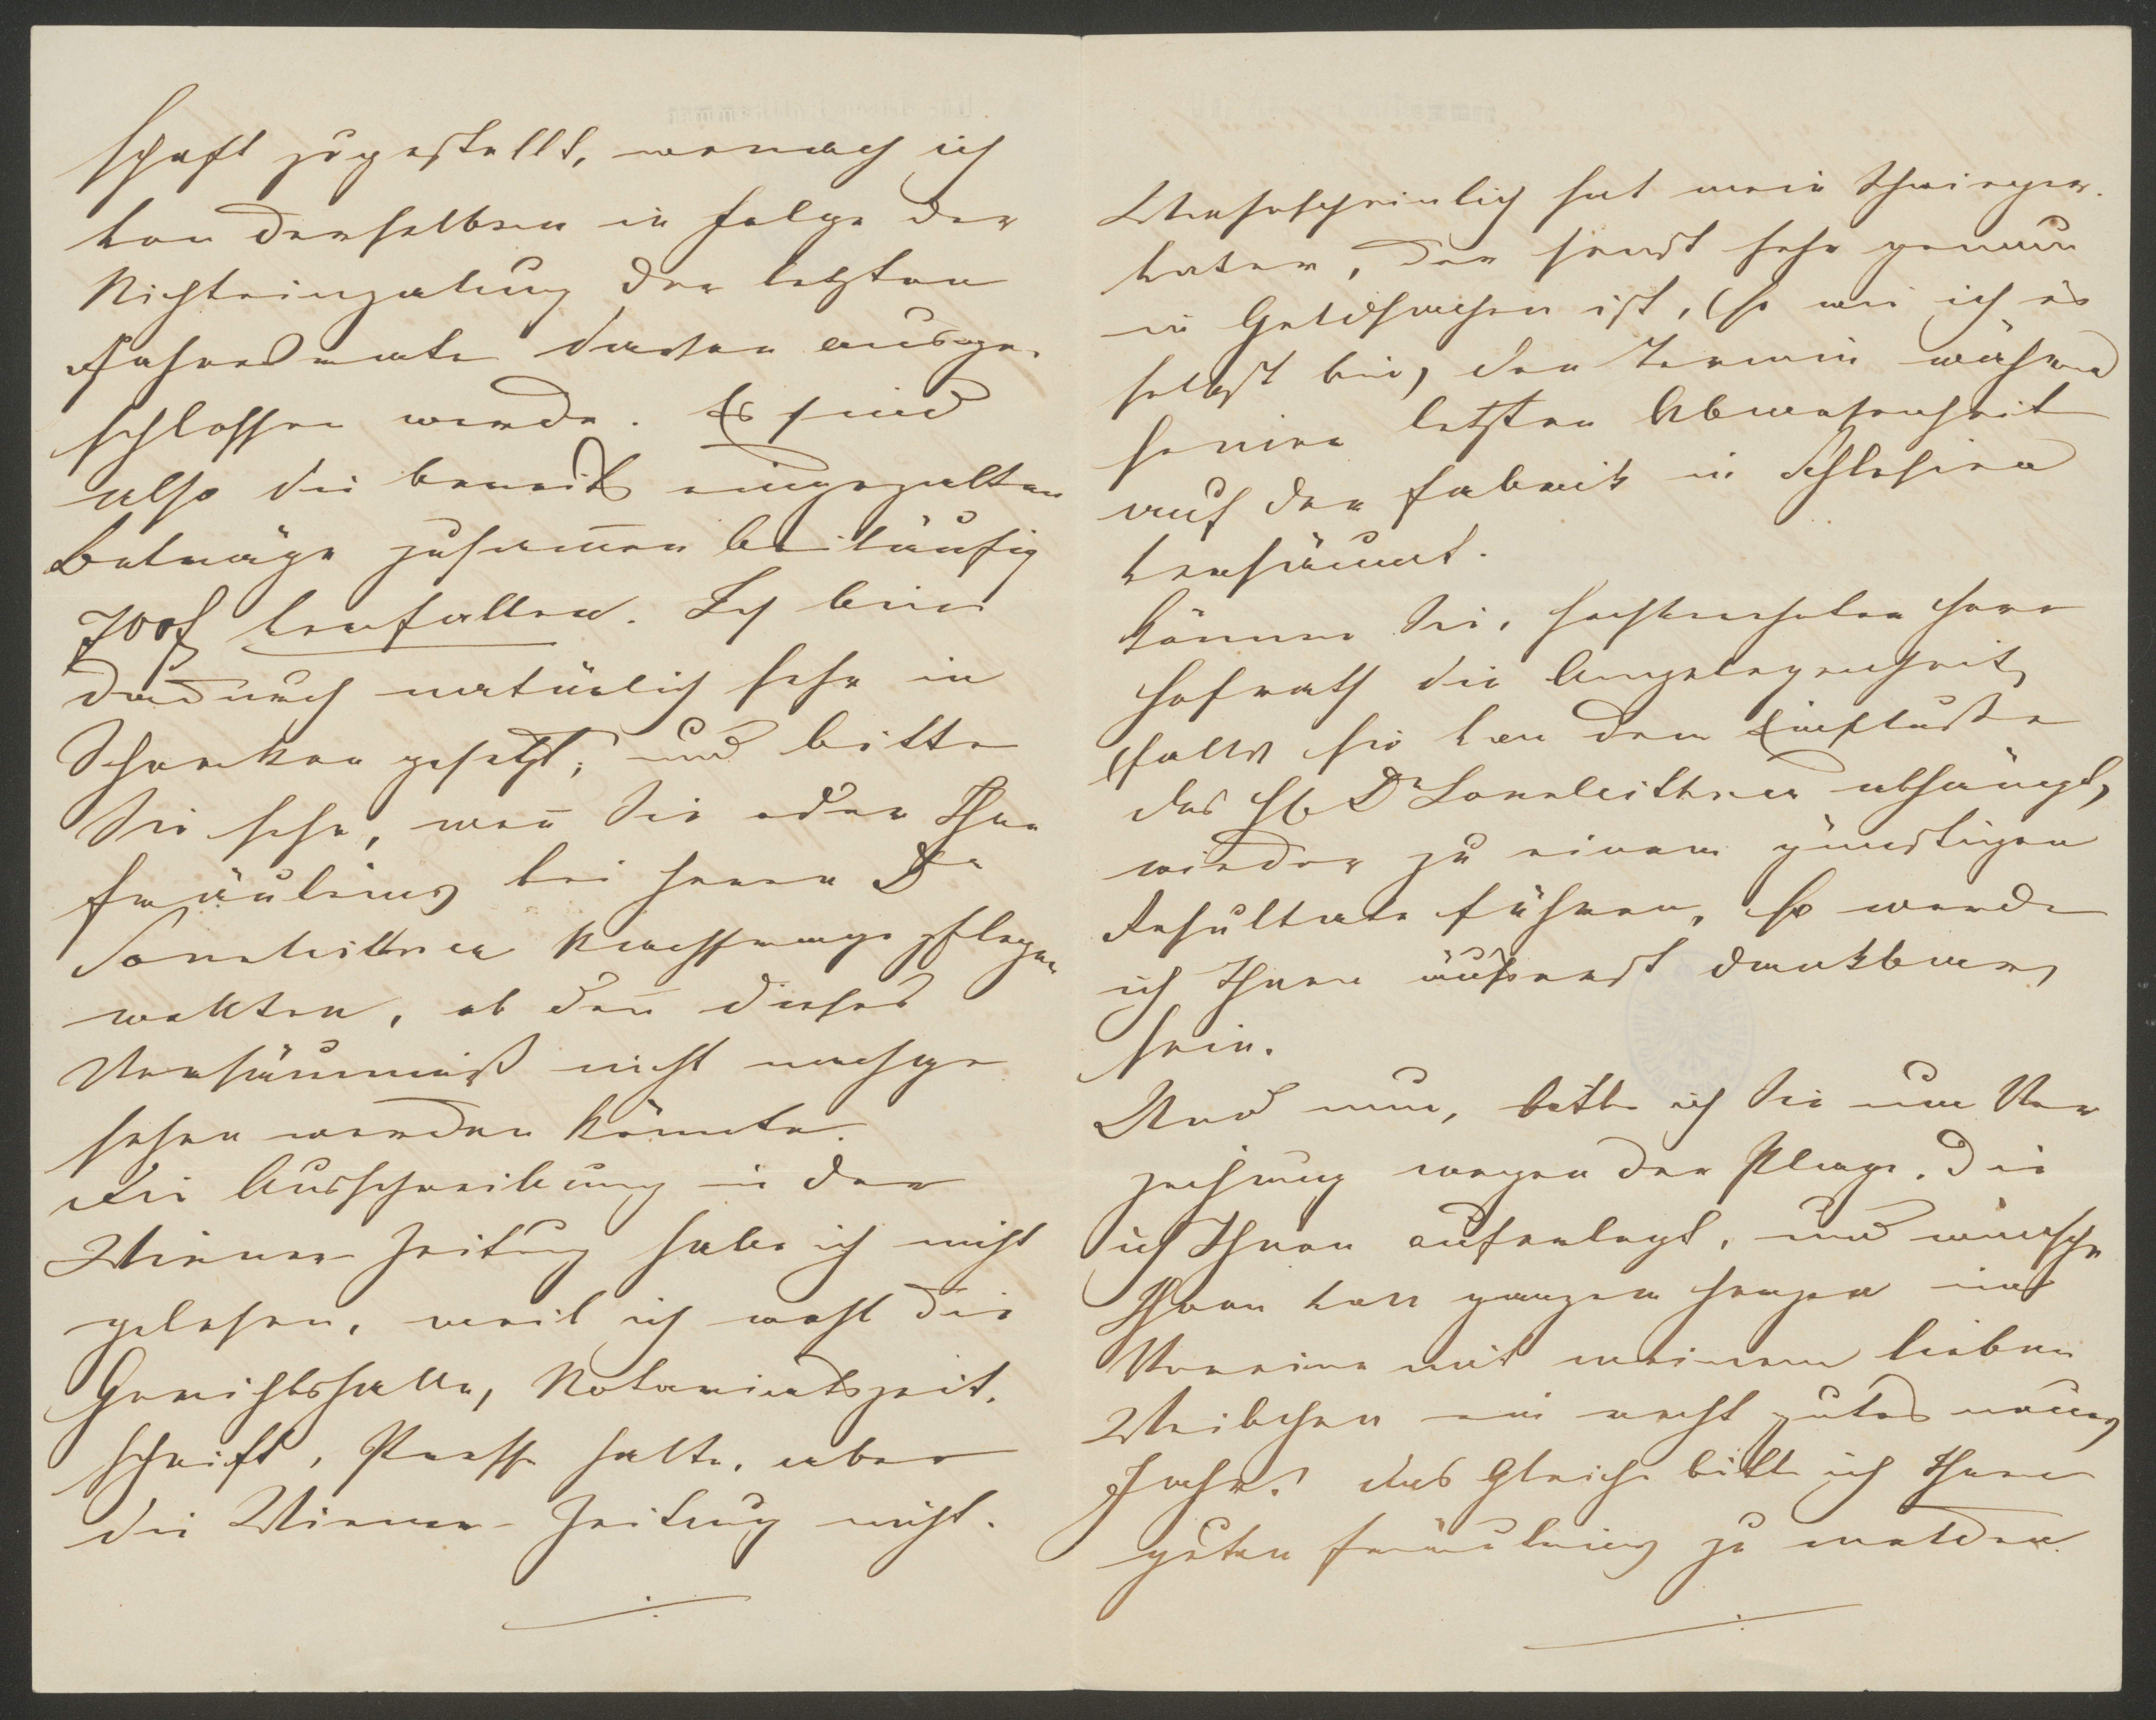 schaft zugestellt, wonach ich
von derselben in Folge der
Nichteinzalung der letzten
Jahresrate davon ausge-
schlossen werde. Es sind
also die bereits eingezalten
Beträge zusam̅en beiläufig
700f verfallen. Ich bin
dadurch natürlich sehr in
Schrecken gesetzt, und bitte
Sie sehr, wen̅ Sie oder Ihre
Fräuleins bei Herrn Dr
Sonnleithner Nachfrage pflegen
wollten, ob den̅ dieses
Versäumniß nicht nachge
sehen werden könnte.
Die Ausschreibung in der
Wiener Zeitung habe ich nicht
gelesen, weil ich wohl die
Gerichtshalle, Notariatszeit.
schrift, Presse halte, aber
die Wiener-Zeitung nicht.
Wahrscheinlich hat mein Schwieger-
vater, der sonst sehr genau
in Geldsachen ist, (so wie ich es
selbst bin) den Termin während
seiner letzten Abwesenheit
auf der Fabrik in Schlesien
versäumt.
Können Sie, hochverehrter Herr
Hofrath die Angelegenheit,
(falls sie von dem Einfluße
des H Dr Sonnleithner abhängt)
wieder zu einem günstigen
Resultate führen, so werde
ich Ihnen äußerst dankbar
sein.
Und nun, bitte ich Sie um Ver
zeihung wegen der Plage, die
ich Ihnen auferlegt, und wünsche
Ihnen von ganzem Herzen im
Vereine mit meinem lieben
Weibchen ein recht gutes neues
Jahr! Das Gleiche bitte ich Ihren
guten Fräuleins zu melden.